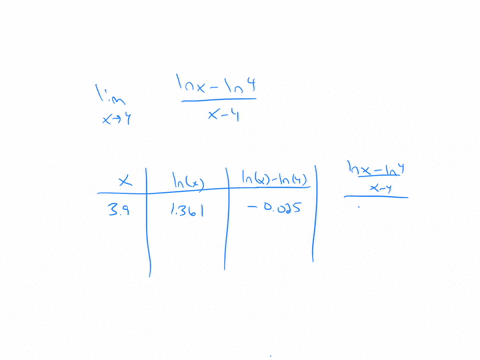 lim x→4 (ln x - ln 4)/(x-4)
x | ln(x) | ln(x)-ln(4) | (ln x - ln 4)/(x-4)
3.9 | 1.361 | -0.025